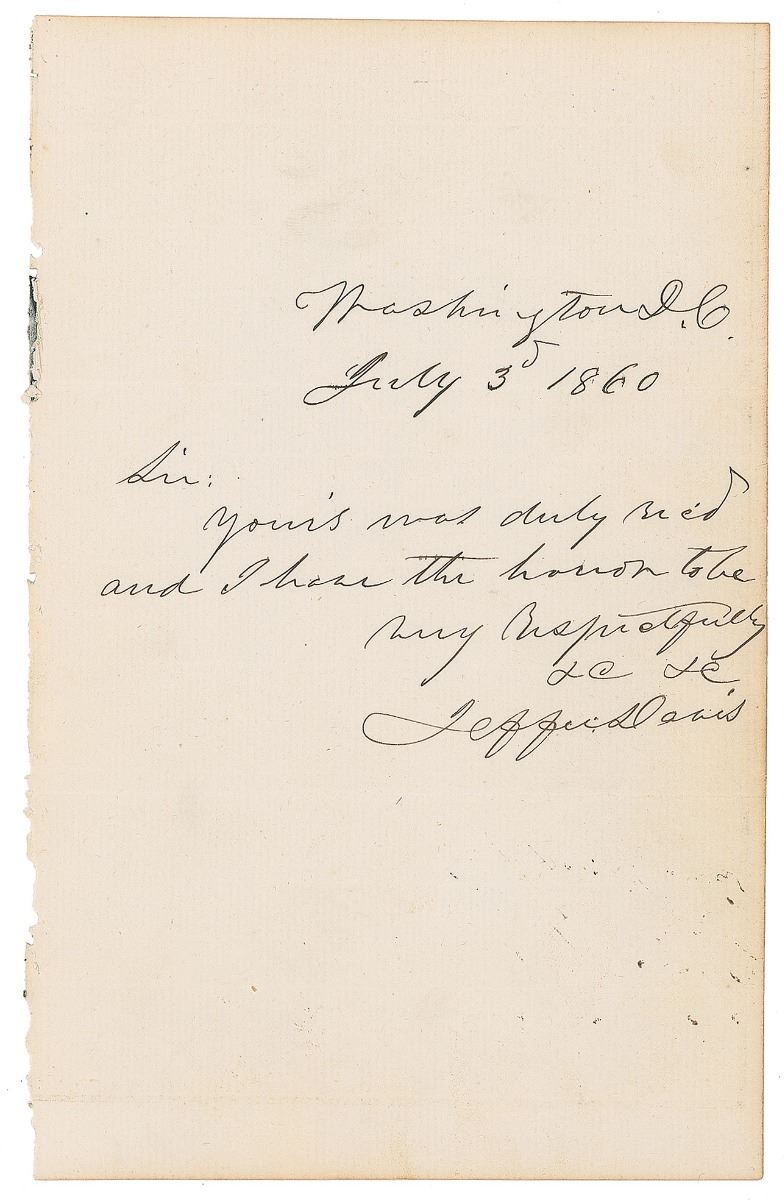 Washington D.C.
July 3d 1860
Sir:
Yours was duly recd
and I have the honor to be
very respectfully
&c &c
Jeffer. Davis